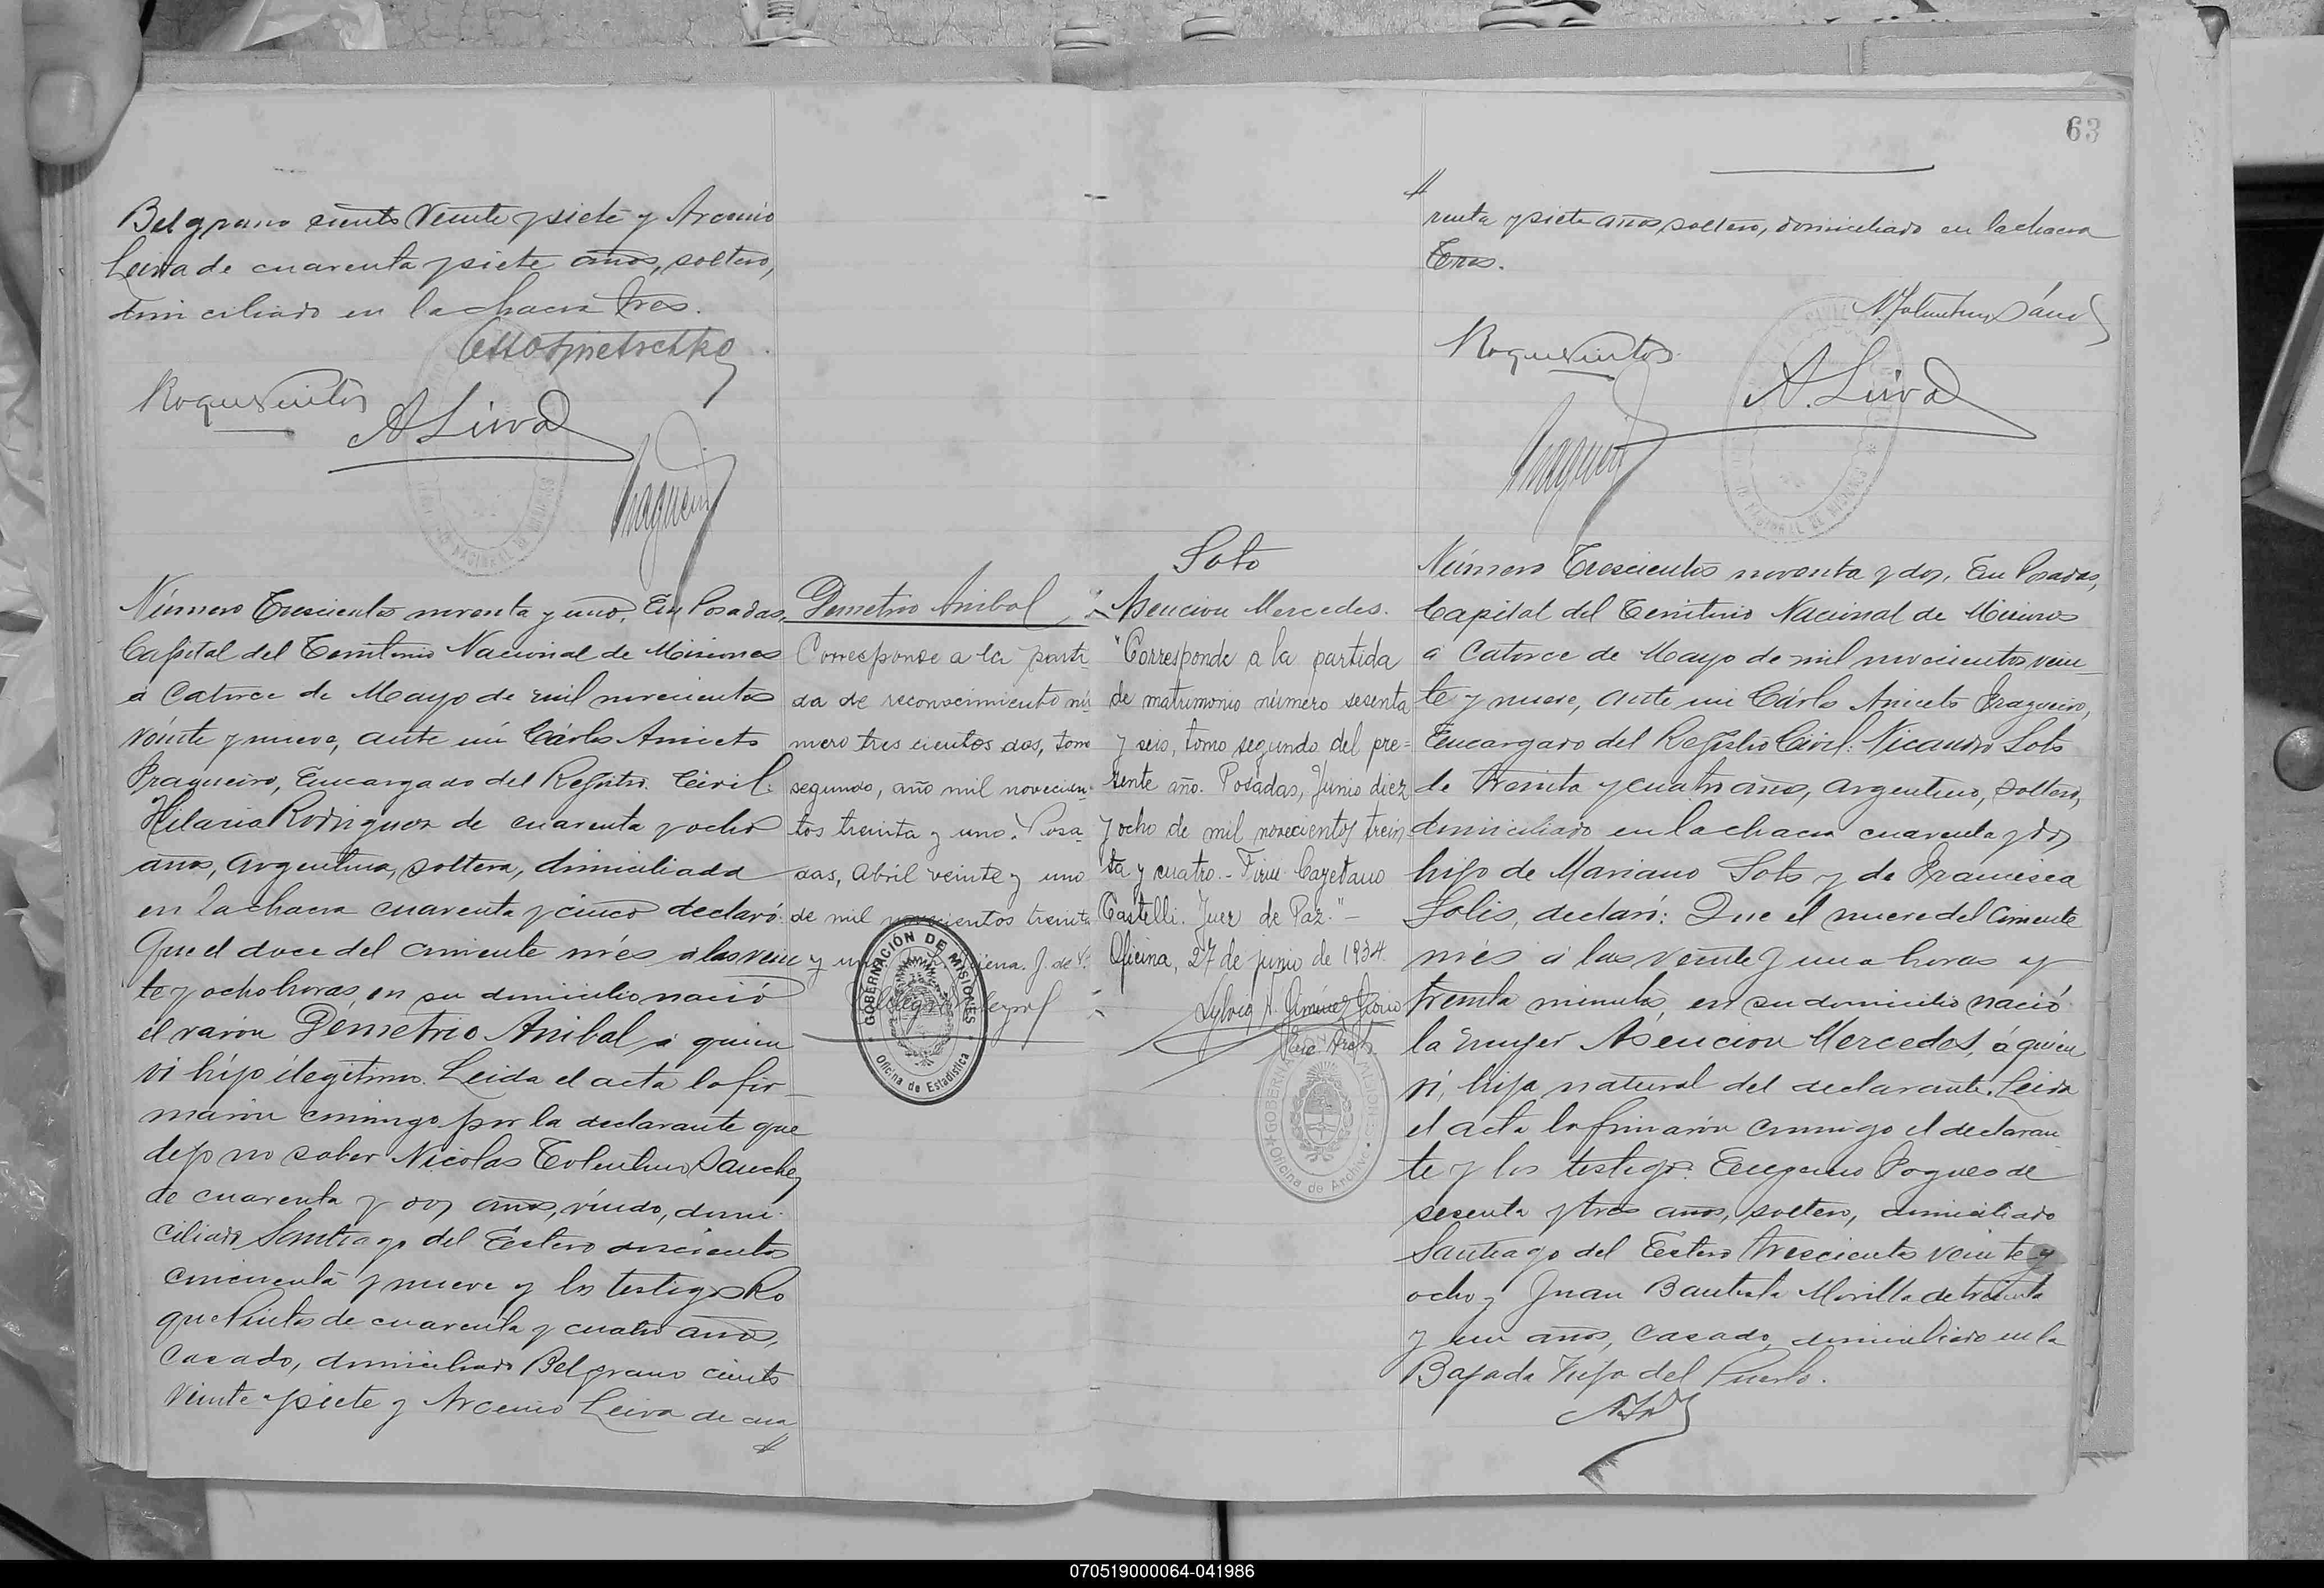 Belgrano ciento veinte y siete y Arcenio
Leiva de cuarenta y siete años, soltero,
domiciliado en la chacra tres.
Roque Pintos
A. Leiva
Número Trescientos noventa y uno. En Posadas,
Capital del Territorio Nacional de Misiones
á Catorce de Mayo de mil novecientos
veinte y nueve, ante mí Cárlos Aniceto
Fragueiro, Encargado del Registro Civil:
Hilaria Rodriguez de cuarenta y ocho
años, argentina, soltera, domiciliada
en la chacra cuarenta y cinco declaró:
Que el doce del corriente més á las vein
te y ocho horas, en su domicilio nació
el varón Demetrio Anibal, á quien
vi hijo ilegítimo. Leida el acta la fir-
maron conmigo por la declarante que
dijo no saber Nicolas Tolentino Sanchez
de cuarenta y dos años, viudo, domi-
ciliado Santiago del Estero doscientos
cincuenta y nueve y los testigos Ro
que Pintos de cuarenta y cuatro años,
casado, domiciliado Belgrano ciento
veinte y siete y Arcenio Leiva de cua
//
Demetrio Anibal
Corresponde a la parti
da de reconocimiento nú-
mero tres cientos dos, tomo
segundo, año mil novecien-
tos treinta y uno. Posa-
das, Abril veinte y uno
de mil novecientos treinta
y J. de P.
GOBERNACIÓN DE MISIONES
Oficina de Estadística
Soto
Asencion Mercedes.
"Corresponde a la partida
de matrimonio número sesenta
y seis, tomo segundo del pre=
sente año. Posadas, Junio diez
y ocho de mil novecientos trein
ta y cuatro.- Firu: Cayetano
Castelli. Juez de Paz."-
Oficina, 27 de junio de 1934.
GOBERNACION MISIONES
Oficina de Archivo
63
//
renta y siete años, soltero, domiciliado en la chacra
Tres.
N. Tolentino Sánchez
Roque Pintos
A. Leiva
Número Trescientos noventa y dos. En Posadas,
Capital del Territorio Nacional de Misiones
á Catorce de Mayo de mil novecientos vein-
te y nueve, ante mi Cárlos Aniceto Fragueiro,
Encargado del Registro Civil: Nicandro Soto
de treinta y cuatro años, argentino, soltero,
domiciliado en la chacra cuarenta y dos
hijo de Mariano Soto y de Francisca
Solis, declaró: Que el nueve del corriente
més á las veinte y una horas y
treinta minutos, en su domicilio nació
la mujer Asencion Mercedes, á quien
ví, hija natural del declarante. Leida
el acta la firmaron conmigo el declaran-
te y los testigos: Eugenio Pogues de
sesenta y tres años, soltero, domiciliado
Santiago del Estero trescientos veinte y
ocho y Juan Bautista Morilla de treinta
y un años, casado, domiciliado en la
Bajada Vieja del Puerto.
070519000064-041986